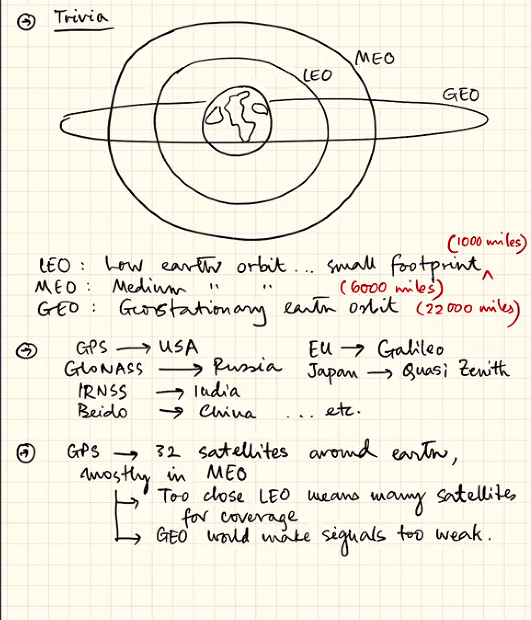 Trivia
MEO
LEO
GEO
(1000 miles)
LEO : Low earth orbit ... small footprint ^
MEO : Medium " " (6000 miles)
GEO : Geostationary earth orbit (22000 miles)
GPS → USA EU → Galileo
GLONASS → Russia Japan → Quasi Zenith
IRNSS → India
Beido → China ... etc.
GPS → 32 satellites around earth,
mostly in MEO
Too close LEO means many satellites
for coverage
GEO would make signals too weak.